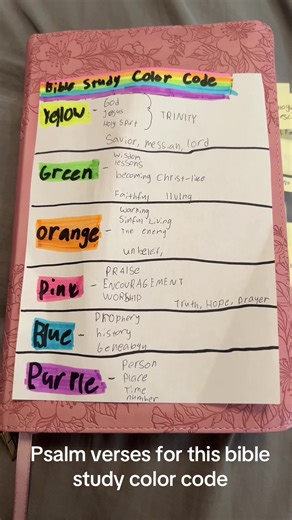 Bible Study Color Code
Yellow - God
Jesus
Holy Spirit
} TRINITY
Savior, messiah, lord
Green - Wisdom
lessons
becoming Christ-like
Faithful living
Orange - Warning
Sinful Living
The enemy
unbelief,
Pink - PRAISE
ENCOURAGEMENT
WORSHIP
Truth, Hope, Prayer
Blue - Prophery
history
Genealogy
Purple - Person
Place
Time
number
Psalm verses for this bible
study color code